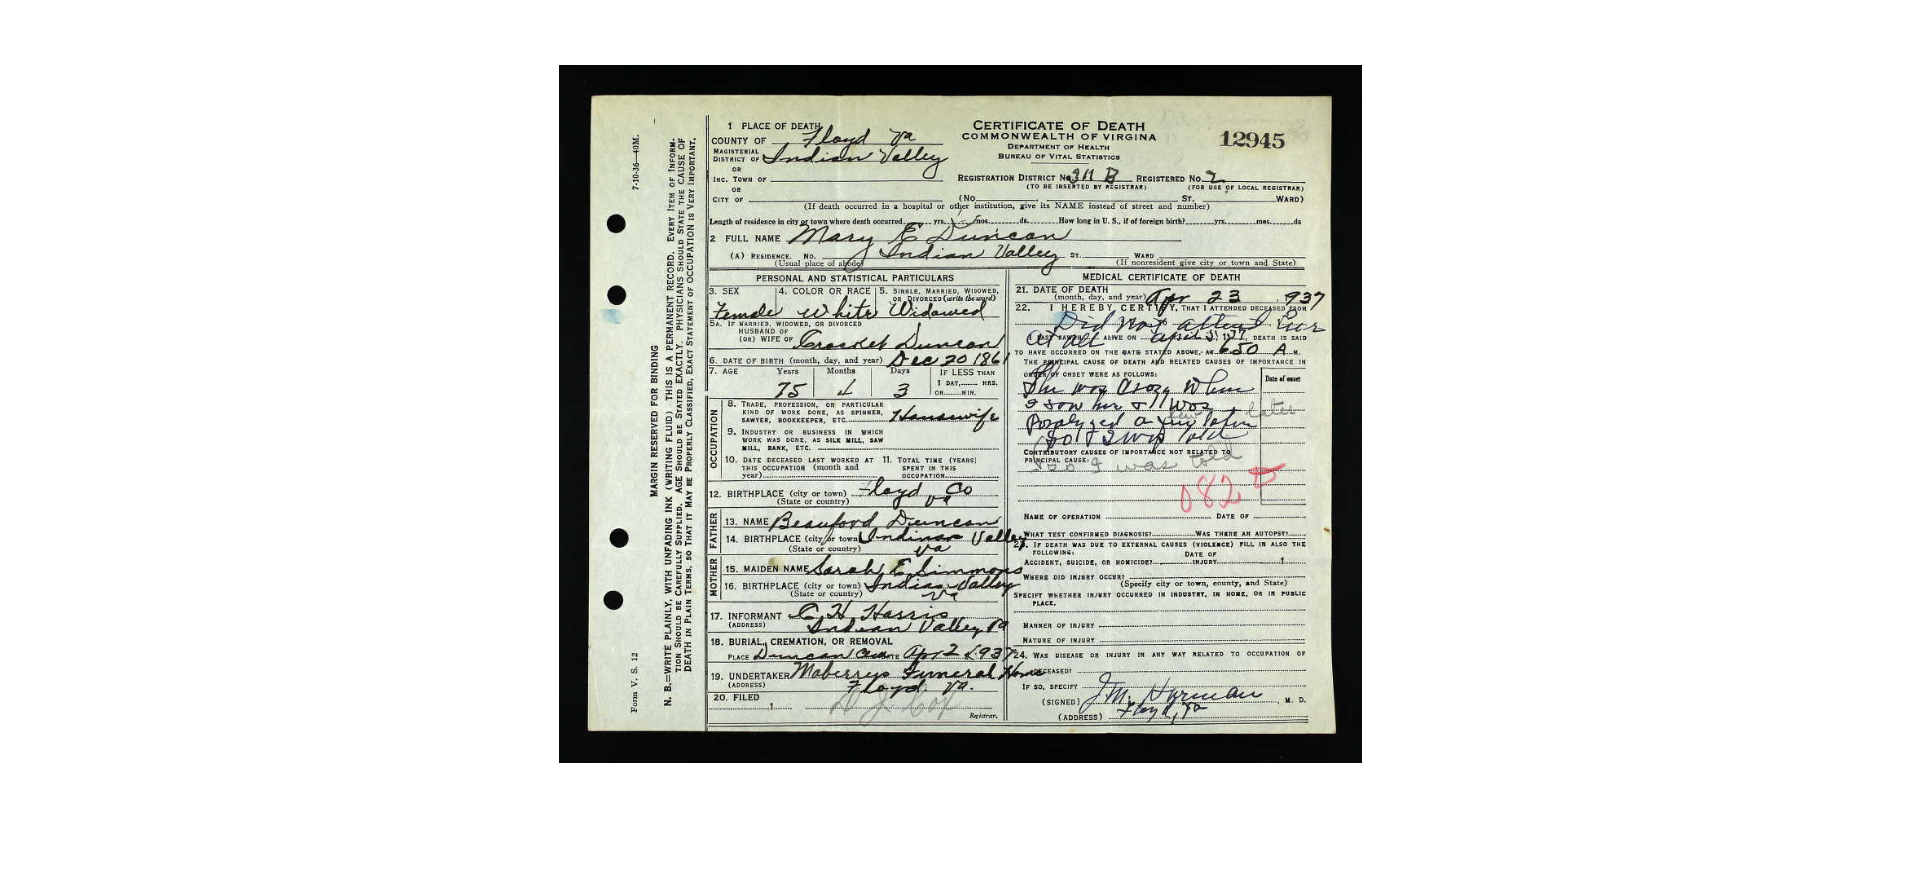 CERTIFICATE OF DEATH
COMMONWEALTH OF VIRGINIA
DEPARTMENT OF HEALTH
BUREAU OF VITAL STATISTICS
12945
1 PLACE OF DEATH
COUNTY OF Floyd Va
MAGISTERIAL DISTRICT OF Indian Valley
OR
INC. TOWN OF
OR
CITY OF
REGISTRATION DISTRICT No. 311 B REGISTERED No. 2
(TO BE INSERTED BY REGISTRAR) (FOR USE OF LOCAL REGISTRAR)
(No. ST. WARD)
(If death occurred in a hospital or other institution, give its NAME instead of street and number)
Length of residence in city or town where death occurred yrs. mos. ds. How long in U. S., if of foreign birth? yrs. mos. ds
2 FULL NAME Mary E Duncan
(A) RESIDENCE. No. Indian Valley ST. WARD
(Usual place of abode) (If nonresident give city or town and State)
PERSONAL AND STATISTICAL PARTICULARS
3. SEX 4. COLOR OR RACE 5. SINGLE, MARRIED, WIDOWED, OR DIVORCED (write the word)
Female White Widowed
5A. IF MARRIED, WIDOWED, OR DIVORCED
HUSBAND OF
(OR) WIFE OF Duncan
6. DATE OF BIRTH (month, day, and year) Dec 20 1861
7. AGE Years Months Days IF LESS THAN
1 DAY, HRS.
OR MIN.
75 4 3
OCCUPATION
8. TRADE, PROFESSION, OR PARTICULAR
KIND OF WORK DONE, AS SPINNER,
SAWYER, BOOKKEEPER, ETC. Housewife
9. INDUSTRY OR BUSINESS IN WHICH
WORK WAS DONE, AS SILK MILL, SAW
MILL, BANK, ETC.
10. DATE DECEASED LAST WORKED AT
THIS OCCUPATION (month and
year)
11. TOTAL TIME (YEARS)
SPENT IN THIS
OCCUPATION
12. BIRTHPLACE (city or town) Floyd Co
(State or country) Va
FATHER
13. NAME Beauford Duncan
14. BIRTHPLACE (city or town) Indian Valley
(State or country) Va
MOTHER
15. MAIDEN NAME Sarah E Simmons
16. BIRTHPLACE (city or town) Indian Valley
(State or country) Va
17. INFORMANT C H Harris
(ADDRESS) Indian Valley Va
18. BURIAL, CREMATION, OR REMOVAL
PLACE Duncan DATE Apr 2 1937
19. UNDERTAKER Maberrys Funeral Home
(ADDRESS) Floyd Va.
20. FILED
Registrar.
MEDICAL CERTIFICATE OF DEATH
21. DATE OF DEATH
(month, day, and year) Apr 23 1937
22. I HEREBY CERTIFY, THAT I ATTENDED DECEASED FROM
Did not attend her
at all
LAST SAW H ALIVE ON April DEATH IS SAID
TO HAVE OCCURRED ON THE DATE STATED ABOVE, AT 650 A M.
THE PRINCIPAL CAUSE OF DEATH AND RELATED CAUSES OF IMPORTANCE IN
ORDER OF ONSET WERE AS FOLLOWS:
Date of onset
She was Crazy when
I saw her & was
Paralyzed a few later
So I was told
CONTRIBUTORY CAUSES OF IMPORTANCE NOT RELATED TO
PRINCIPAL CAUSE:
So I was told
082
NAME OF OPERATION DATE OF
WHAT TEST CONFIRMED DIAGNOSIS? WAS THERE AN AUTOPSY?
23. IF DEATH WAS DUE TO EXTERNAL CAUSES (VIOLENCE) FILL IN ALSO THE
FOLLOWING:
ACCIDENT, SUICIDE, OR HOMICIDE? DATE OF INJURY 1
WHERE DID INJURY OCCUR?
(Specify city or town, county, and State)
SPECIFY WHETHER INJURY OCCURRED IN INDUSTRY, IN HOME, OR IN PUBLIC
PLACE.
MANNER OF INJURY
NATURE OF INJURY
24. WAS DISEASE OR INJURY IN ANY WAY RELATED TO OCCUPATION OF
DECEASED?
IF SO, SPECIFY
(SIGNED) J M. Harman, M. D.
(ADDRESS) Floyd, Va
Form V. S. 12
7-10-36—40M.
MARGIN RESERVED FOR BINDING
N. B.—WRITE PLAINLY, WITH UNFADING INK (WRITING FLUID). THIS IS A PERMANENT RECORD. EVERY ITEM OF INFORM-
TION SHOULD BE CAREFULLY SUPPLIED. AGE SHOULD BE STATED EXACTLY. PHYSICIANS SHOULD STATE THE CAUSE OF
DEATH IN PLAIN TERMS, SO THAT IT MAY BE PROPERLY CLASSIFIED. EXACT STATEMENT OF OCCUPATION IS VERY IMPORTANT.